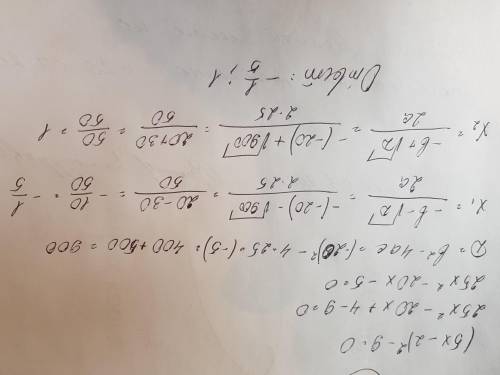 (5x - 2)² - 9 = 0
25x² - 20x + 4 - 9 = 0
25x² - 20x - 5 = 0
D = b² - 4ac = (-20)² - 4·25·(-5) = 400 + 500 = 900
x₁ = (-b - √D)/2a = (-(-20) - √900)/2·25 = (20-30)/50 = -10/50 = -1/5
x₂ = (-b + √D)/2a = (-(-20) + √900)/2·25 = (20+30)/50 = 50/50 = 1
Ответ: -1/5 ; 1